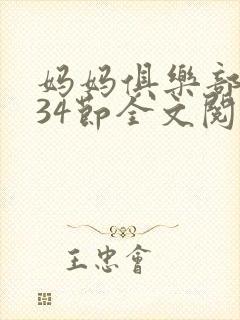 妈妈俱樂部
34節全文閱
王忠會